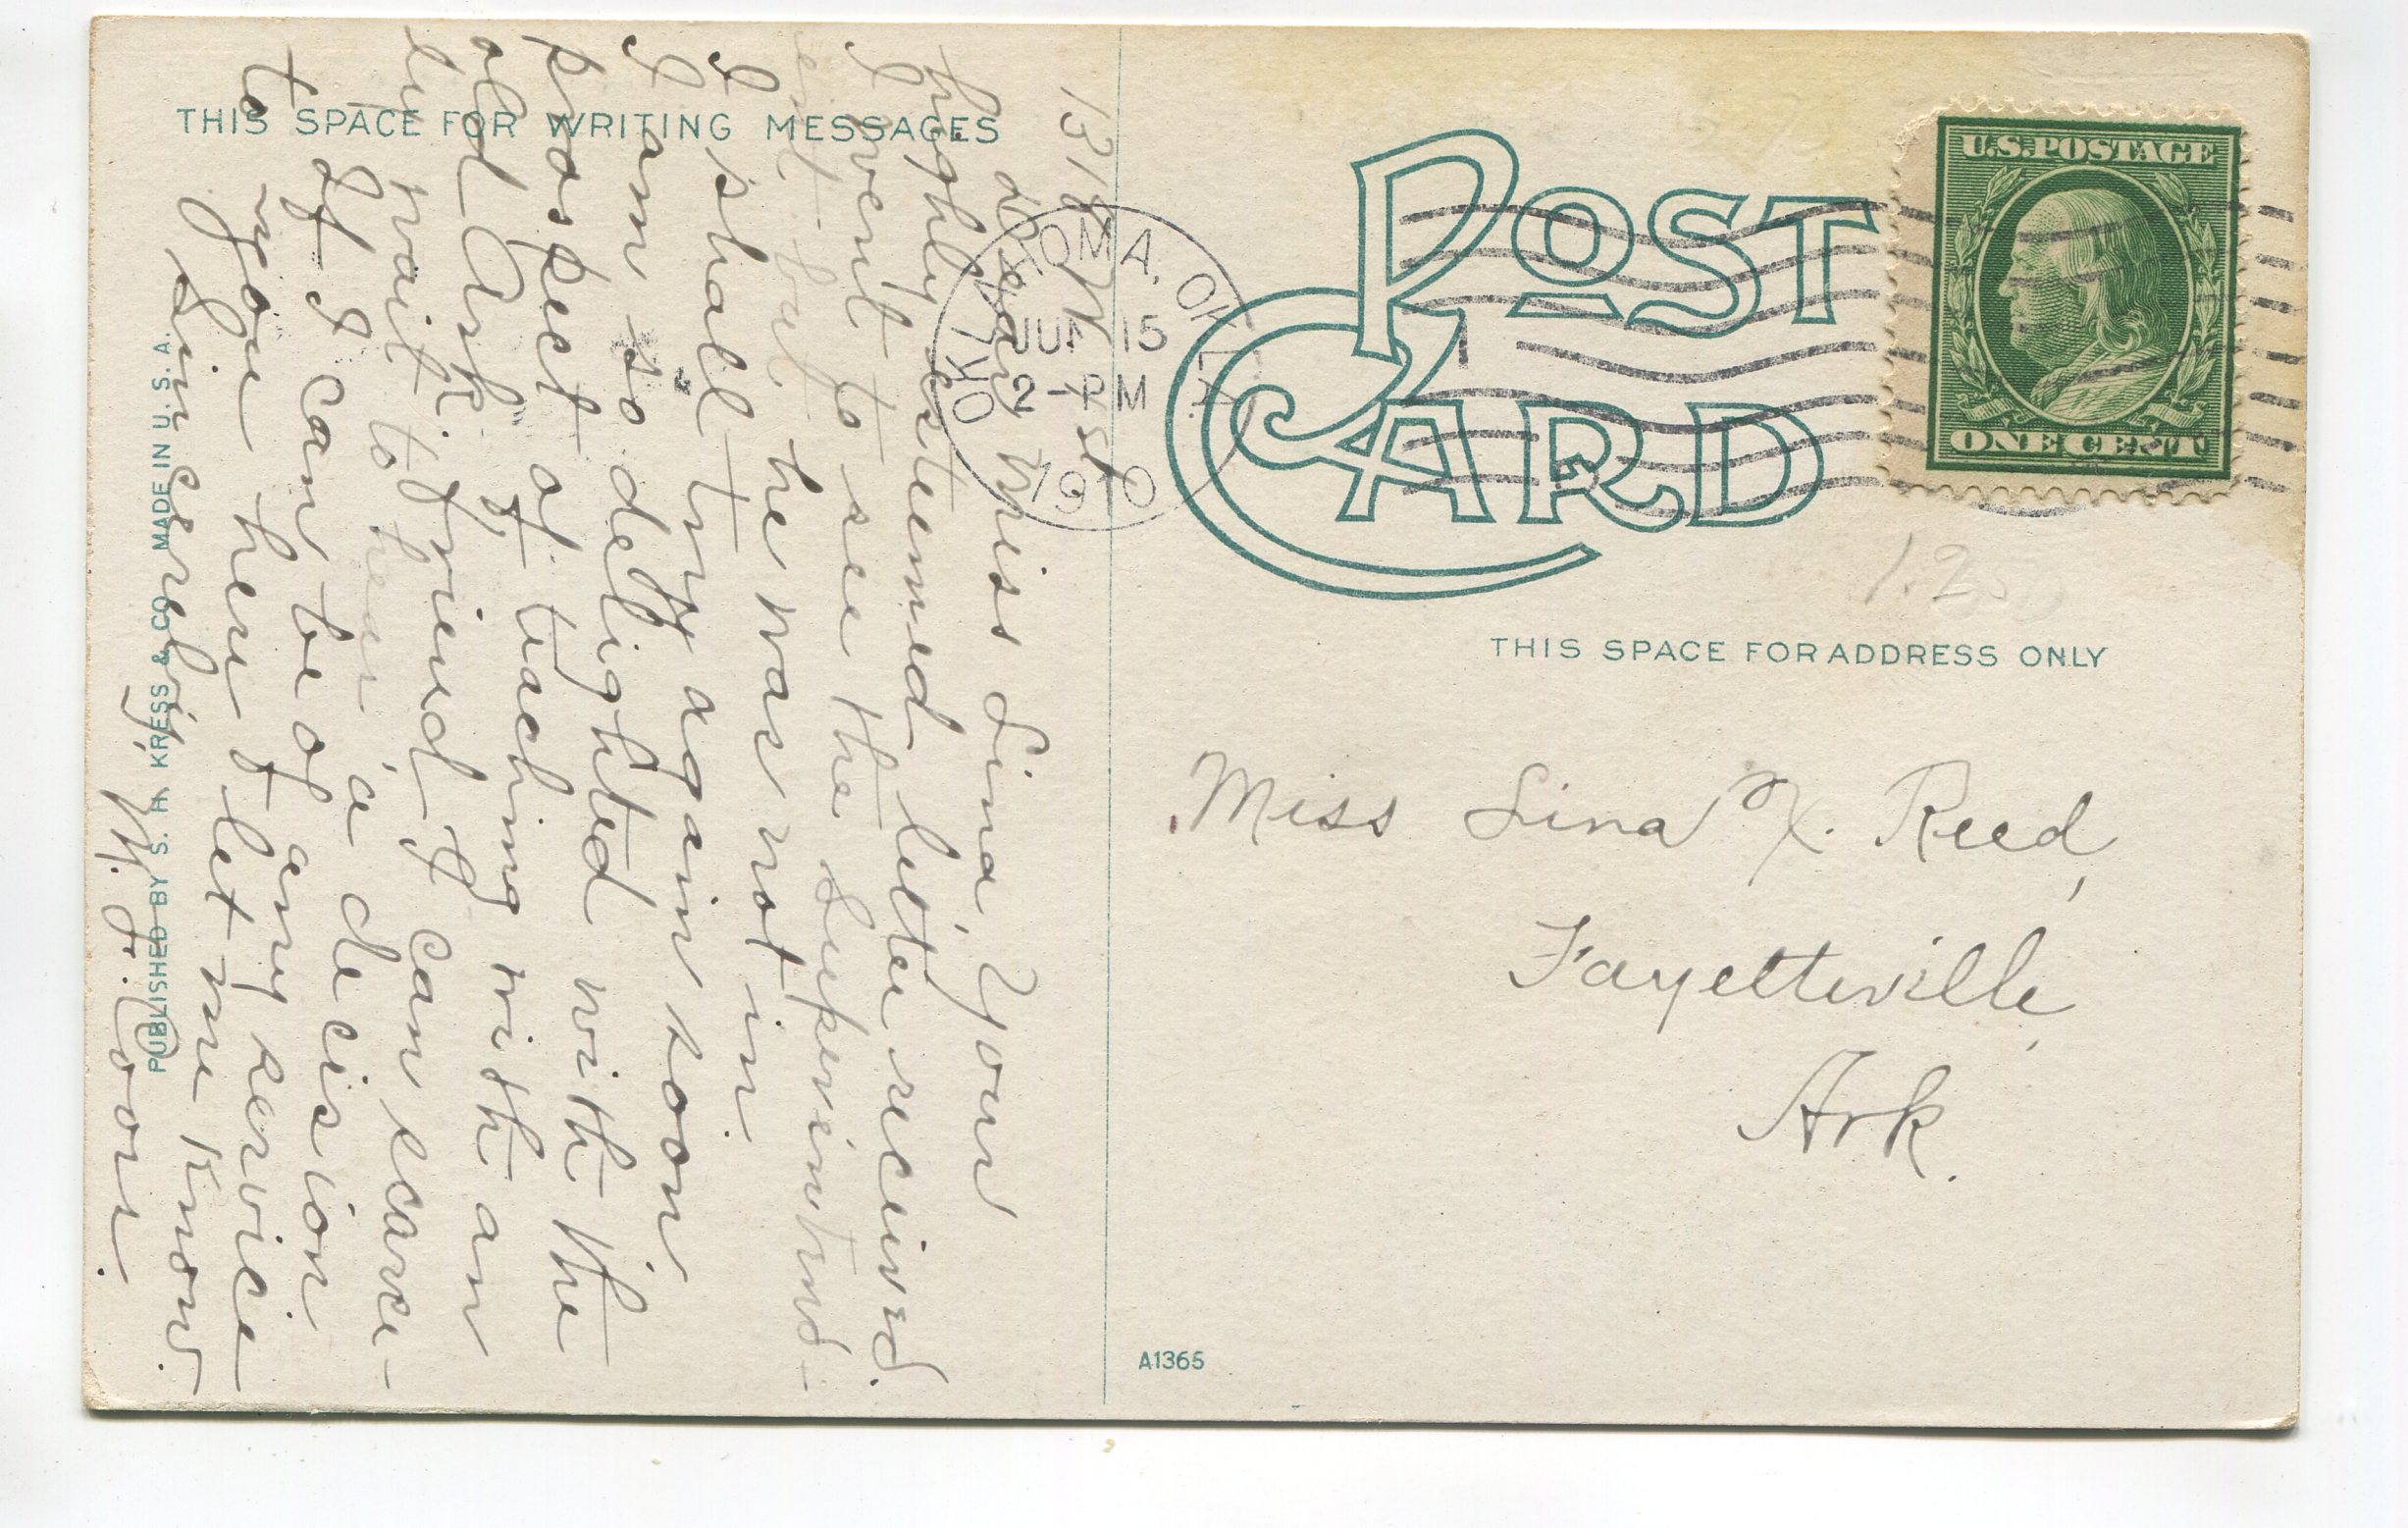 THIS SPACE FOR WRITING MESSAGES
1318 W 1 st
dear miss Lina, Your
highly esteemed letter received.
I went to see the Superintend-
ent but he was not in.
I shall try again soon.
I am so delighted with the
prospect of teaching with an
old Ark. friend, I can scarce-
ly wait to hear a decision
If I can be of any service
to you here let me know.
Sincerely,
W. J. Coon.
PUBLISHED BY S. H. KRESS & CO. MADE IN U. S. A.
OMA, OKLA.
JUN 15
2 - PM
1910
1
POST CARD
U.S. POSTAGE
ONE CENT
1.2
THIS SPACE FOR ADDRESS ONLY
Miss Lina Reed,
Fayetteville,
Ark.
A1365